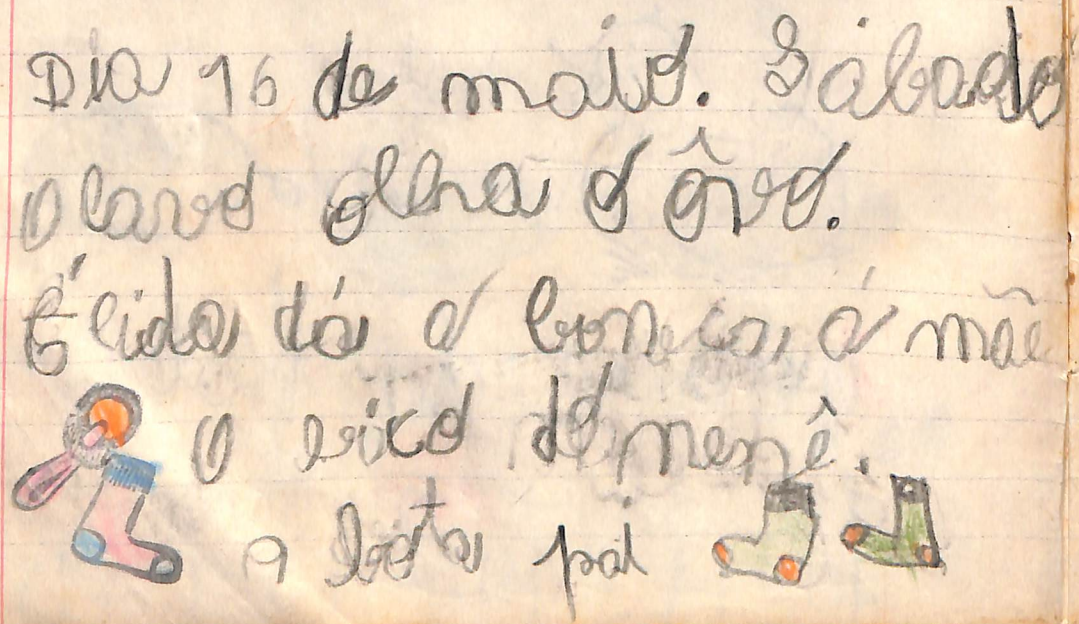 Dia 16 de maio. Sábado
Olavo olha o ôvo.
Élida dá a boneca á mãe
O vico do nenê.
a bota pai